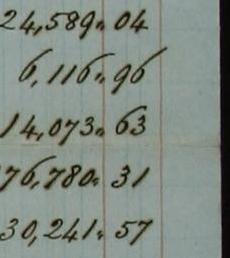 24,589.04
6,116.96
14,073.63
76,780.31
30,241.57